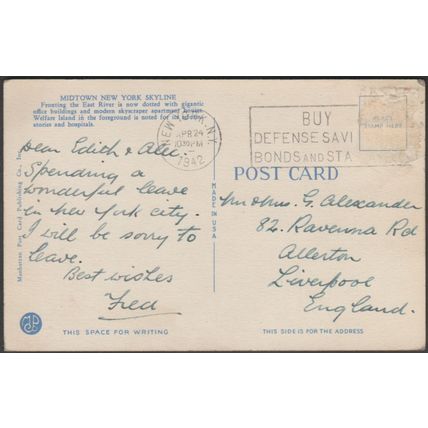 MIDTOWN NEW YORK SKYLINE
Fronting the East River is now dotted with gigantic
office buildings and modern skyscraper apartment houses
Welfare Island in the foreground is noted for its
stories and hospitals.
NEW YORK, N.Y.
APR 24
1030 PM
1942
BUY
DEFENSE SAVI
BONDS AND STA
PLACE
STAMP HERE
POST CARD
Dear Edith & Alec.
Spending a
wonderful leave
in New York city.
I will be sorry to
leave.
Best wishes
Fred
Mr & Mrs. G. Alexander
82. Ravenna Rd
Allerton
Liverpool
England.
Manhattan Post Card Publishing Co., Inc.
MADE IN USA
THIS SPACE FOR WRITING
THIS SIDE IS FOR THE ADDRESS